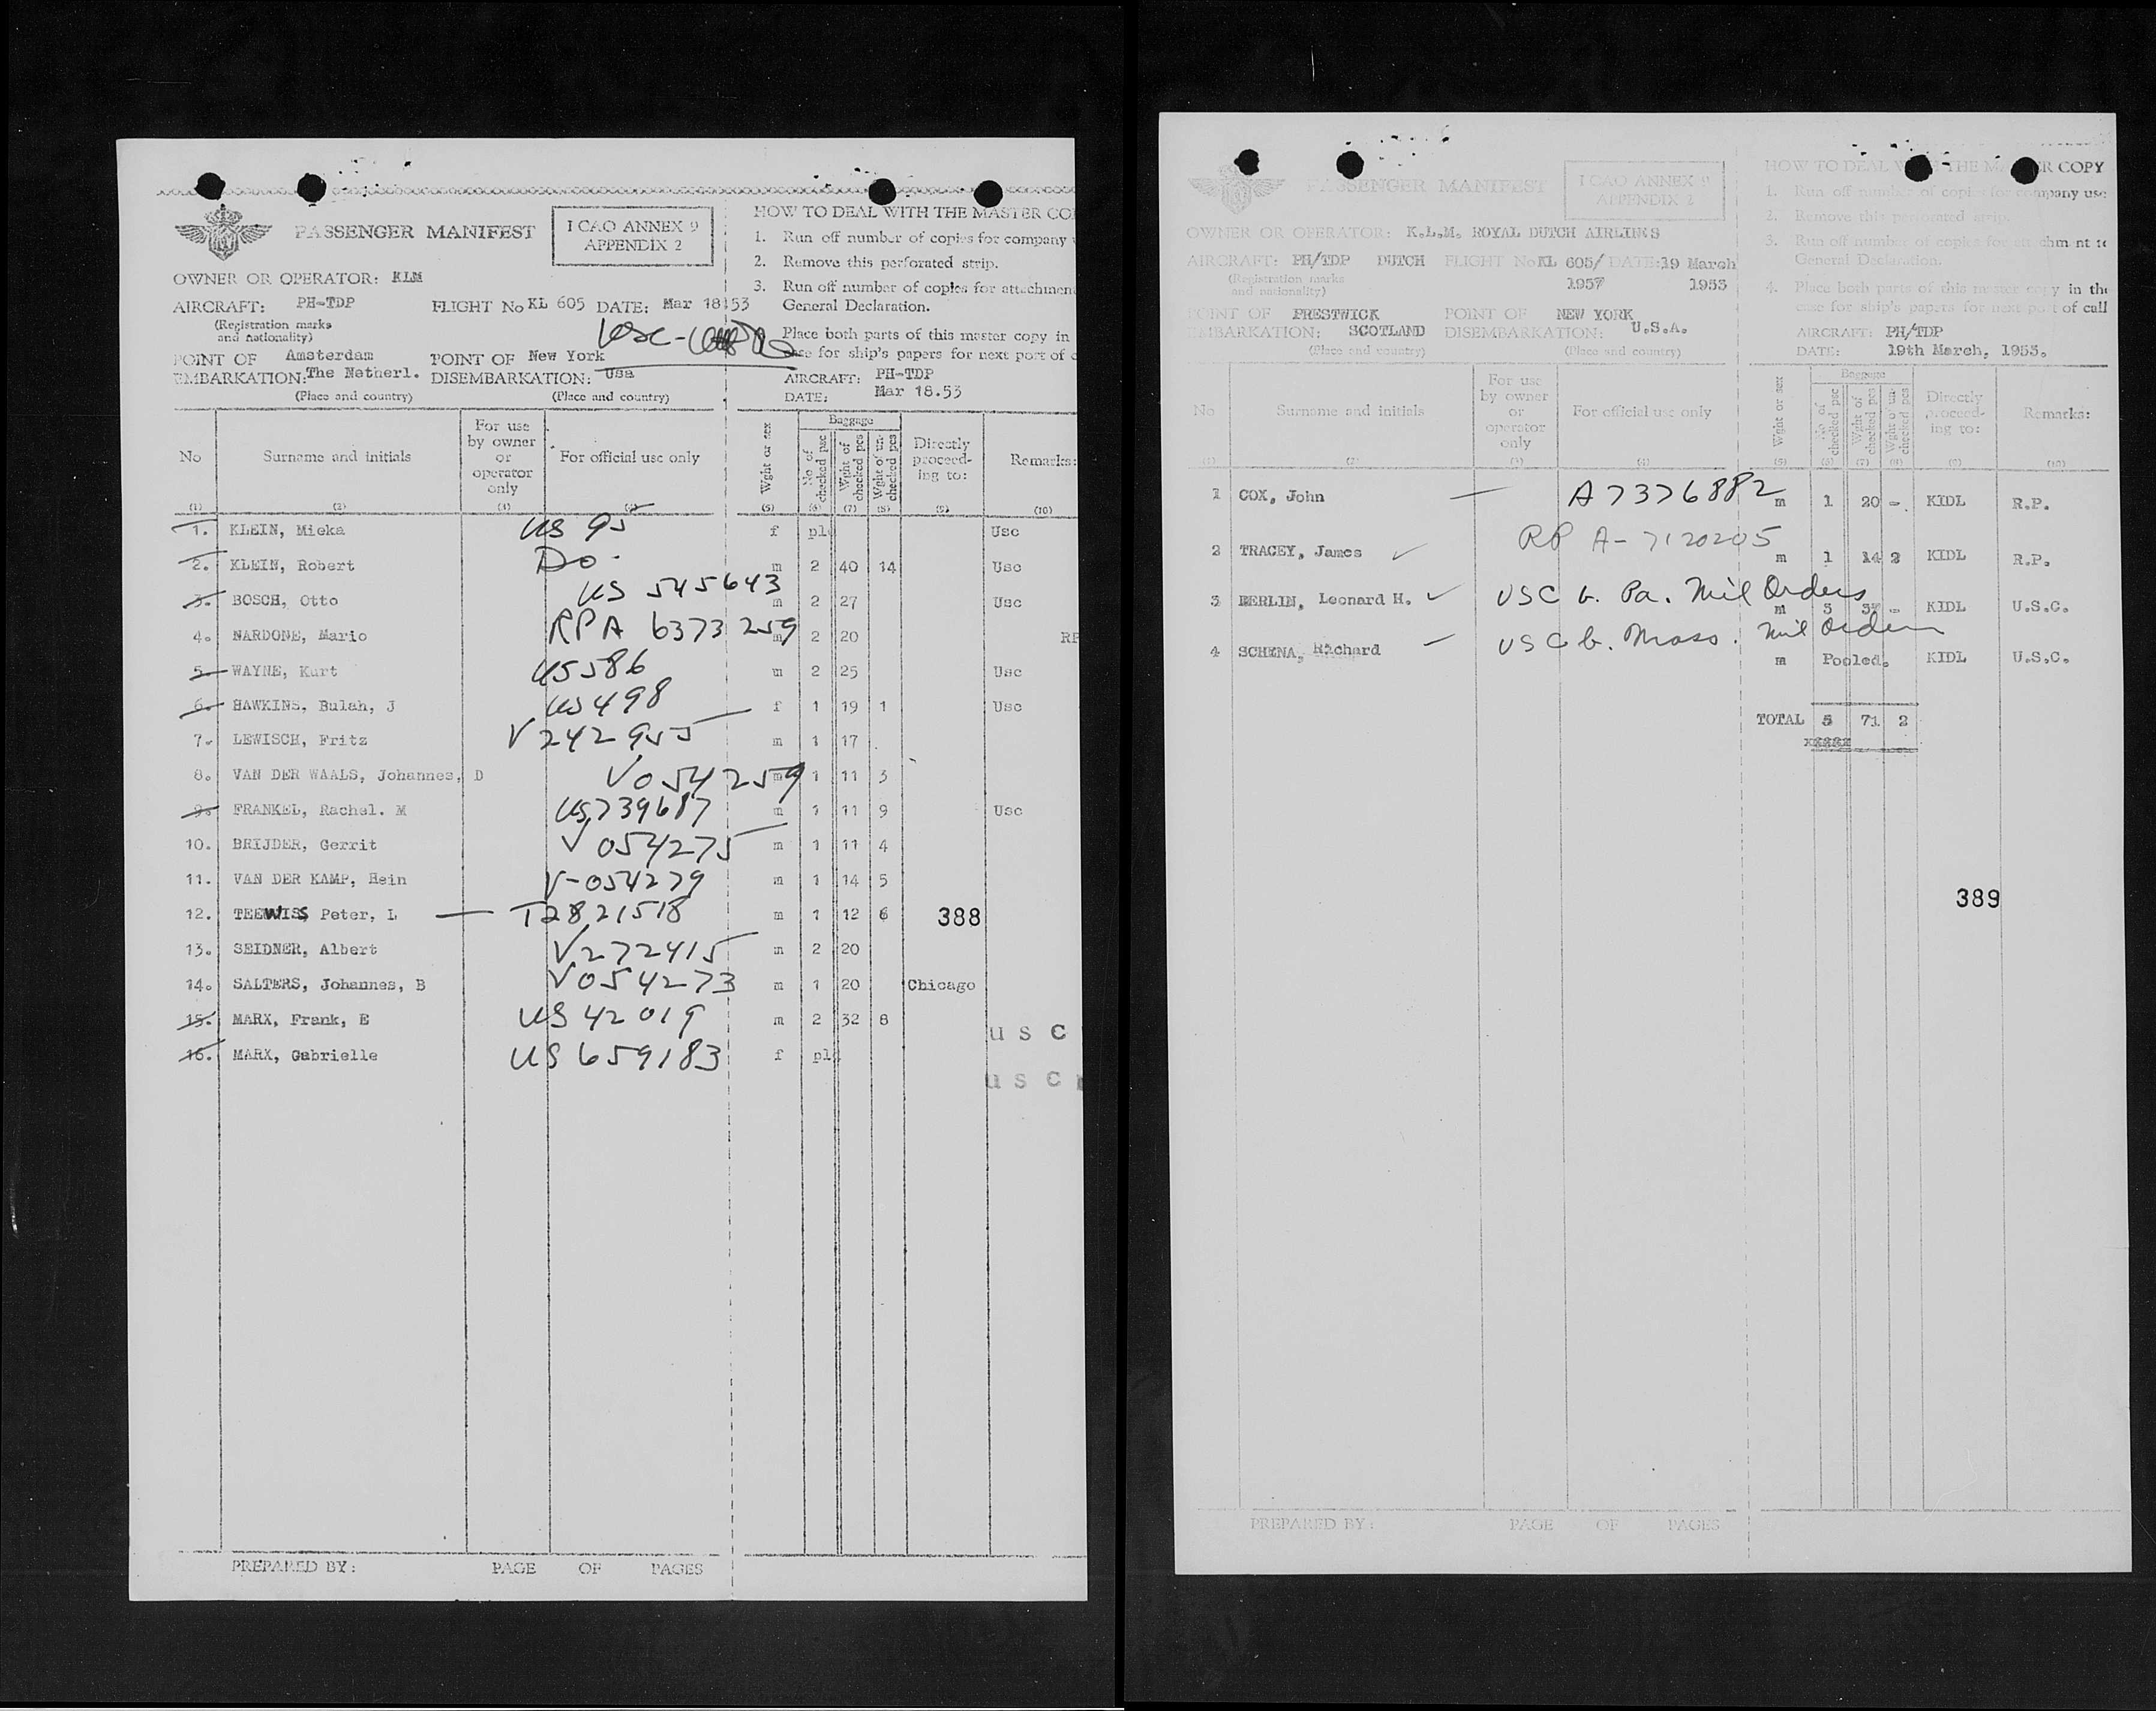 PASSENGER MANIFEST
ICAO ANNEX 9
APPENDIX 2
HOW TO DEAL WITH THE MASTER CO
1. Run off number of copies for company
2. Remove this perforated strip.
3. Run off number of copies for attachment
General Declaration.
Place both parts of this master copy in
case for ship's papers for next port of c
OWNER OR OPERATOR: KLM
AIRCRAFT: PH-TDP FLIGHT No KL 605 DATE: Mar 18.53
(Registration marks
and nationality)
POINT OF Amsterdam POINT OF New York
EMBARKATION: The Netherl. DISEMBARKATION: Usa
(Place and country) (Place and country)
AIRCRAFT: PH-TDP
DATE: Mar 18.53
No Surname and initials For use by owner or operator only For official use only Wght or sex Baggage No of checked pcs Wght of checked pcs Wght of un-checked pcs Directly proceed-ing to: Remarks:
(1) (2) (3) (4) (5) (6) (7) (8) (9) (10)
1. KLEIN, Mieka US 95 f pld Usc
2. KLEIN, Robert Do. m 2 40 14 Usc
3. BOSCH, Otto US 545643 m 2 27 Usc
4. NARDONE, Mario RPA 6373259 m 2 20 RP
5. WAYNE, Kurt US586 m 2 25 Usc
6. HAWKINS, Bulah, J US498 f 1 19 1 Usc
7. LEWISCH, Fritz V242955 m 1 17
8. VAN DER WAALS, Johannes, D V054259 m 1 11 3
9. FRANKEL, Rachel. M US739687 m 1 11 9 Usc
10. BRIJDER, Gerrit V054275 m 1 11 4
11. VAN DER KAMP, Hein V-054279 m 1 14 5
12. TEEWISS Peter, L — T2821518 m 1 12 6
388
13. SEIDNER, Albert V272415 m 2 20
14. SALTERS, Johannes, B V054273 m 1 20 Chicago
15. MARX, Frank, E US 42019 m 2 32 8 usc
16. MARX, Gabrielle US 659183 f pld usc
PREPARED BY: PAGE OF PAGES
PASSENGER MANIFEST
ICAO ANNEX 9
APPENDIX 2
HOW TO DEAL THE MA R COPY
1. Run off number of copies for company use
2. Remove this perforated strip.
3. Run off number of copies for attachment to
General Declaration.
4. Place both parts of this master copy in the
case for ship's papers for next port of call
OWNER OR OPERATOR: K.L.M. ROYAL DUTCH AIRLINES
AIRCRAFT: PH/TDP DUTCH FLIGHT No KL 605/ DATE: 19 March
(Registration marks
and nationality) 1957 1953
POINT OF PRESTWICK POINT OF NEW YORK
EMBARKATION: SCOTLAND DISEMBARKATION: U.S.A.
(Place and country) (Place and country)
AIRCRAFT: PH/TDP
DATE: 19th March, 1953.
No Surname and initials For use by owner or operator only For official use only Wght or sex Baggage No of checked pcs Wght of checked pcs Wght of un-checked pcs Directly proceed-ing to: Remarks:
(1) (2) (3) (4) (5) (6) (7) (8) (9) (10)
1 COX, John — A7376882 m 1 20 - KIDL R.P.
2 TRACEY, James ✓ RP A-7120205 m 1 14 2 KIDL R.P.
3 BERLIN, Leonard H. ✓ USC b. Pa. Mil Orders m 3 37 - KIDL U.S.C.
4 SCHENA, Richard — USC b. Mass. Mil Orders m Pooled. KIDL U.S.C.
TOTAL 5 71 2
389
PREPARED BY: PAGE OF PAGES